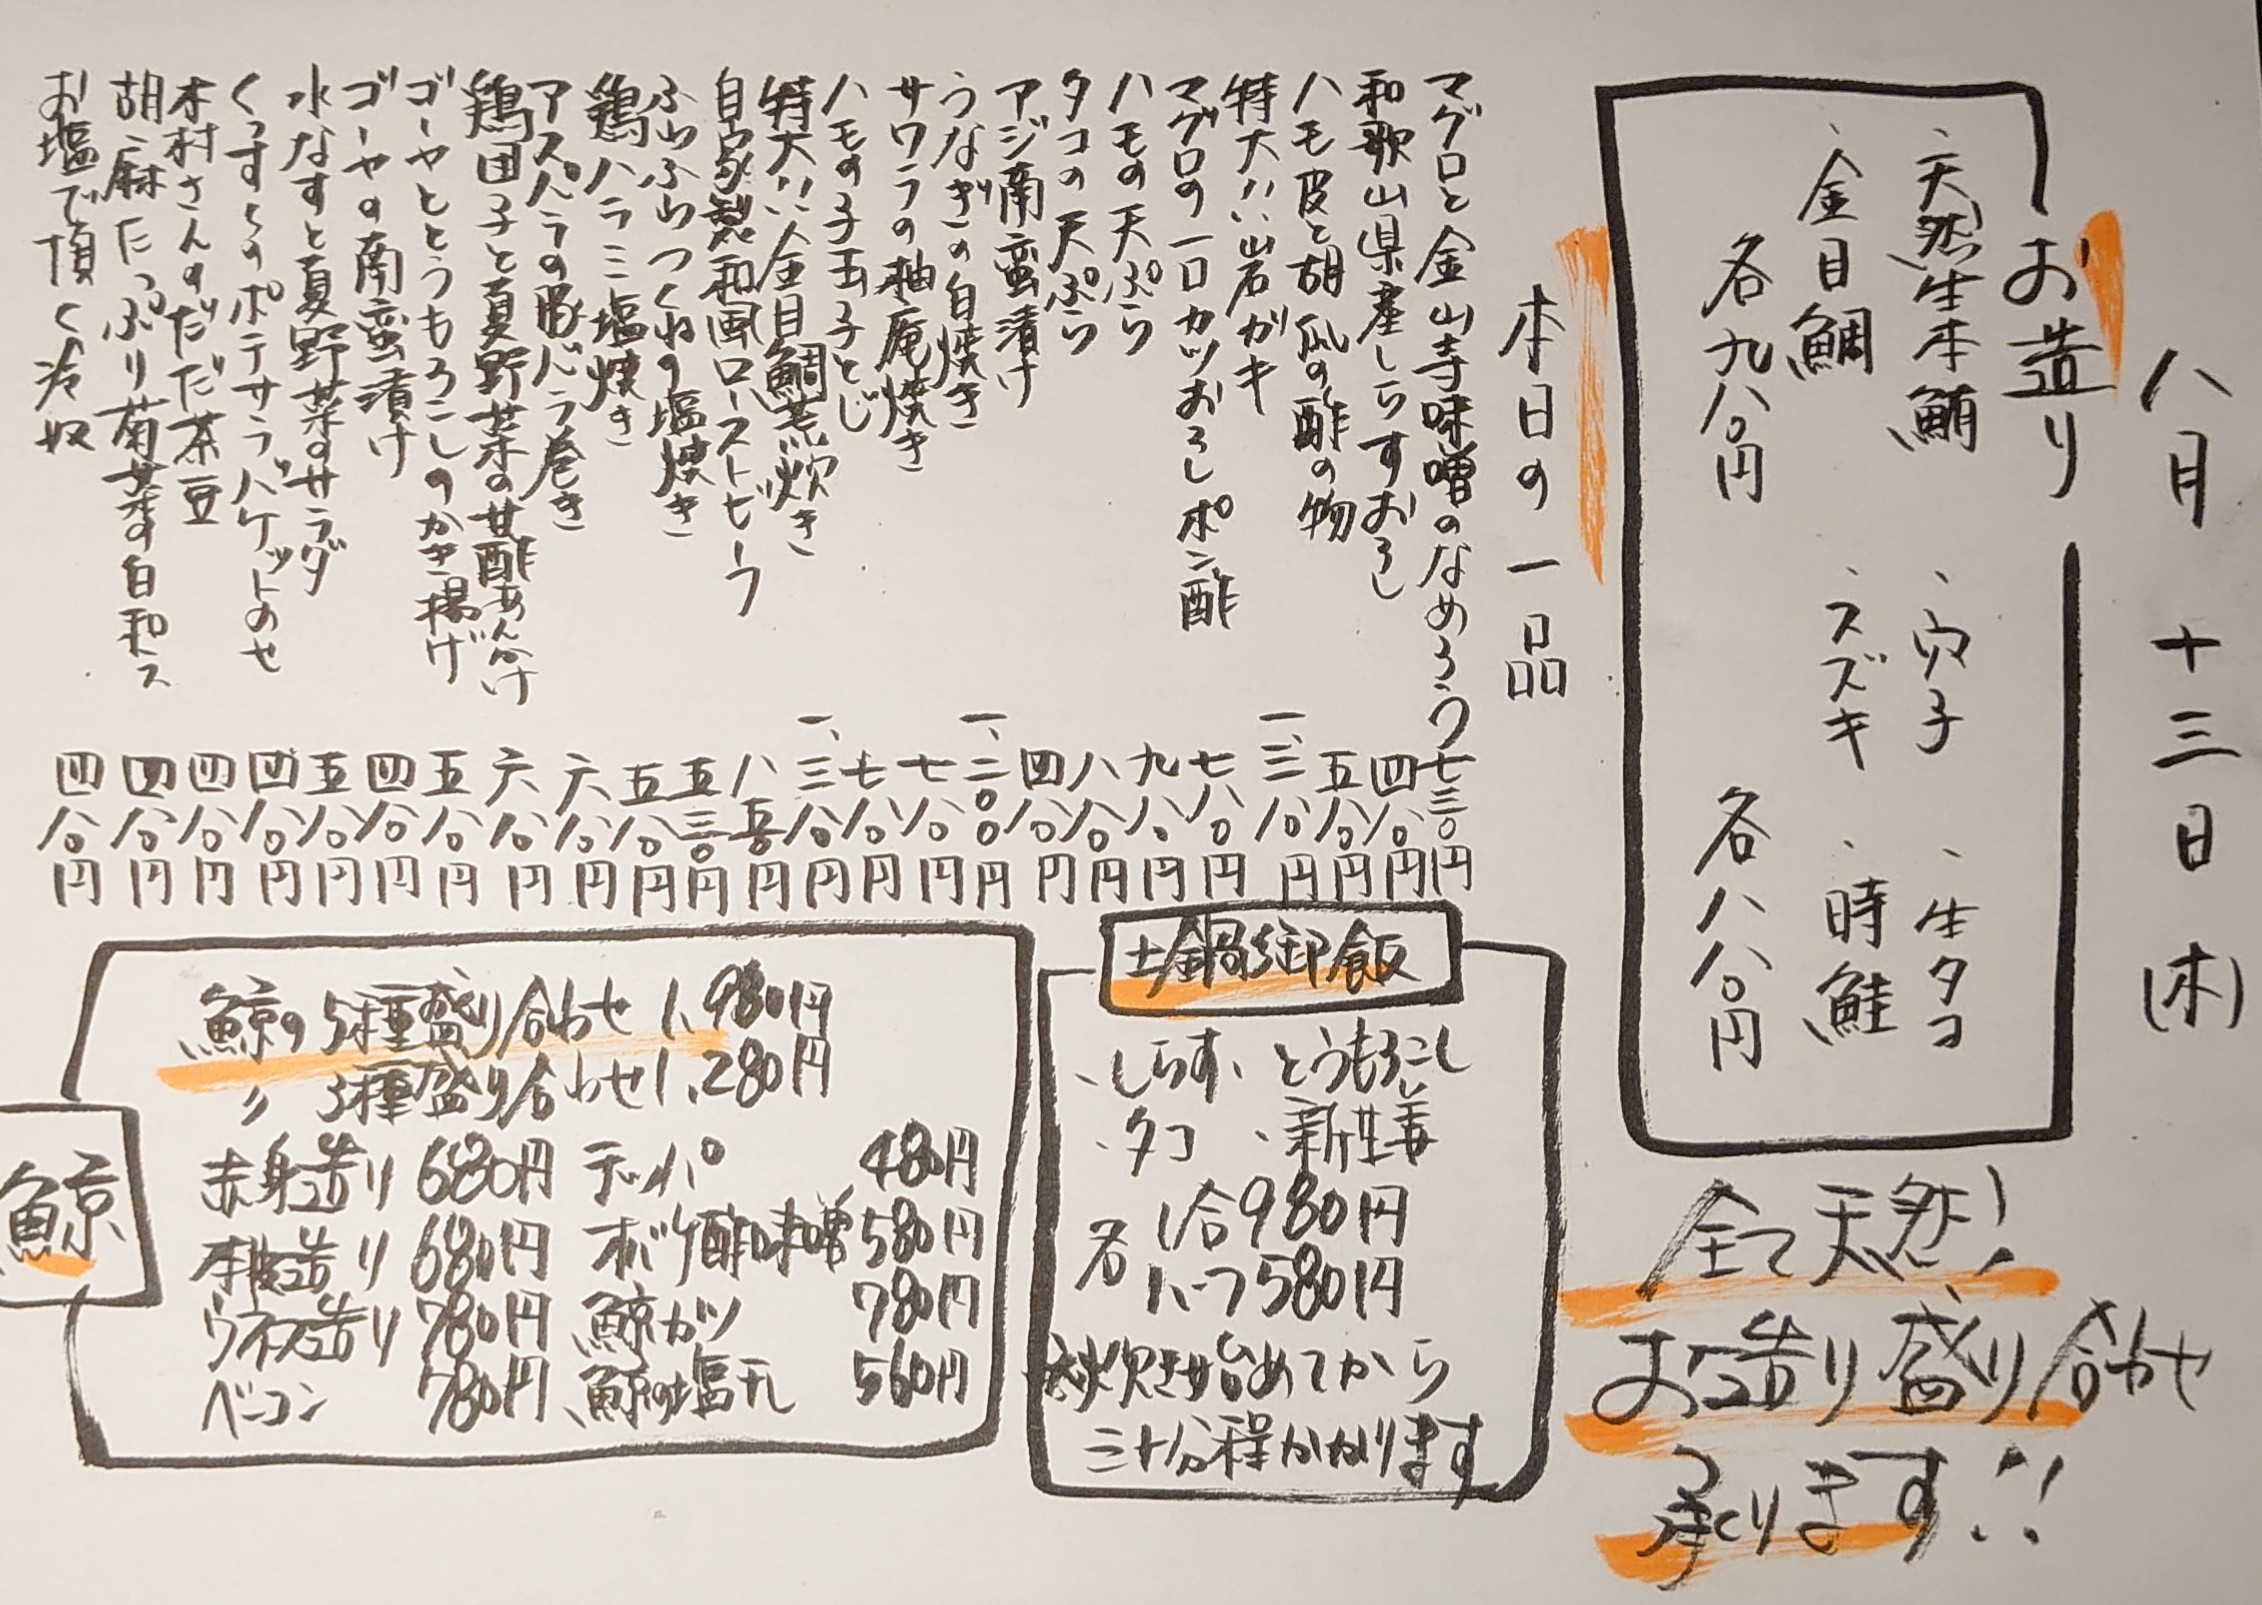 八月十三日(木)
お造り
、天然生本鮪
、金目鯛
各九八〇円
、穴子
、生タコ
、スズキ
、時鮭
各八八〇円
全て天然!
お造り盛り合わせ
承ります!!
本日の一品
マグロと金山寺味噌のなめろう 七三〇円
和歌山県産しらすおろし 四八〇円
ハモ皮と胡瓜の酢の物 五八〇円
特大!!岩ガキ 一、三八〇円
マグロの一口カツおろしポン酢 七八〇円
ハモの天ぷら 九八〇円
タコの天ぷら 八八〇円
アジ南蛮漬け 四八〇円
うなぎの白焼き 一、二〇〇円
サワラの柚庵焼き 七八〇円
ハモの子玉子とじ 七八〇円
特大!!金目鯛荒炊き 一、三八〇円
自家製和風ローストビーフ 八五〇円
ふわふわつくねの塩焼き 五三〇円
鶏ハラミ塩焼き 五八〇円
アスパラの豚バラ巻き 六八〇円
鶏団子と夏野菜の甘酢あんかけ 六八〇円
ゴーヤととうもろこしのかき揚げ 五八〇円
ゴーヤの南蛮漬け 四八〇円
水なすと夏野菜のサラダ 五八〇円
くんすものポテサラバケットのせ 四八〇円
木村さんのだだ茶豆 四八〇円
胡麻たっぷり菊菜の白和え 四八〇円
お塩で頂く冷奴 四八〇円
土鍋御飯
、しらす、とうもろこし
、タコ 、新生姜
各 1合980円
ハーフ580円
炊き始めてから
三十分程かかります
鯨
鯨の5種盛り合わせ 1,980円
〃 3種盛り合わせ 1,280円
赤身造り 680円 テッパ 480円
本皮造り 680円 オバケ酢味噌 580円
ウネス造り 780円 鯨カツ 780円
ベーコン 780円 鯨の塩干し 560円